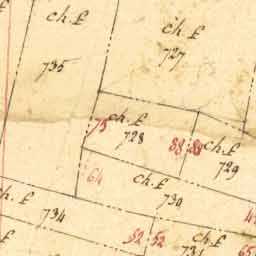 ch. £
ch. £
727
735
75
ch. £
728
88
88
ch. £
729
64
ch. £
730
734
52
52
ch. £
ch. £